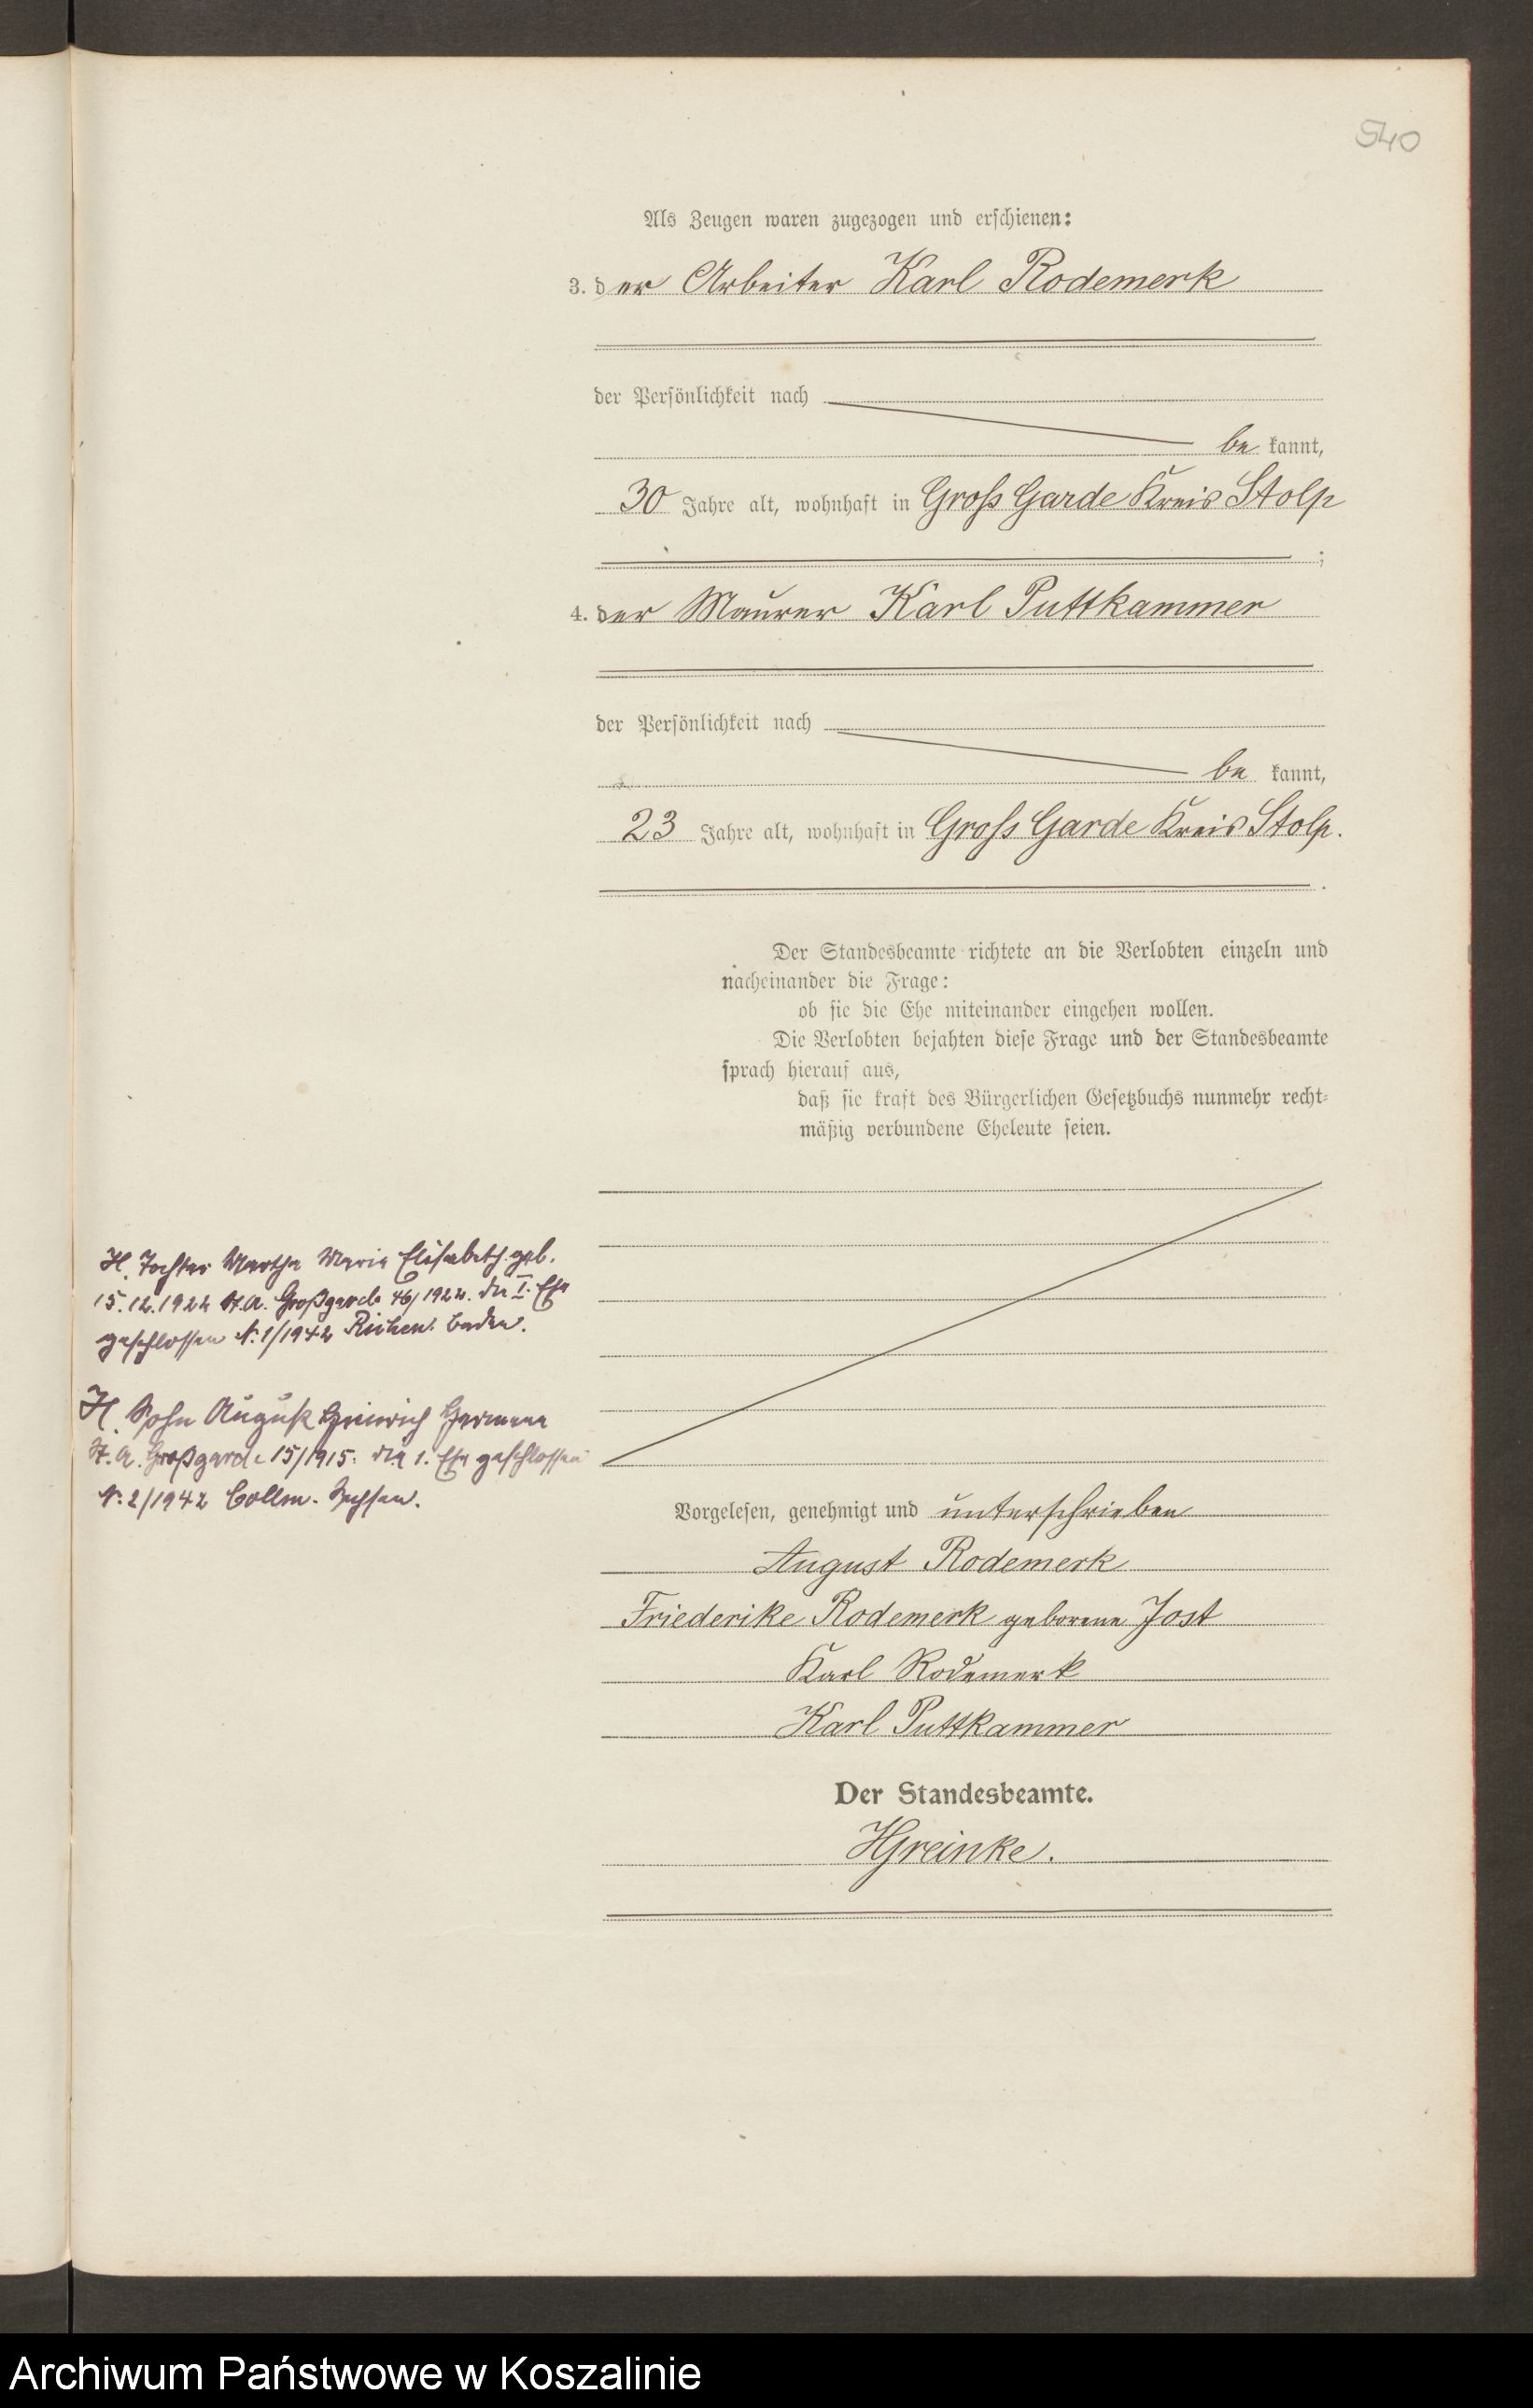 540
Als Zeugen waren zugezogen und erschienen:
3. der Arbeiter Karl Rodemerk
der Persönlichkeit nach
be kannt,
30 Jahre alt, wohnhaft in Gross Garde Kreis Stolp
;
4. der Maurer Karl Puttkammer
der Persönlichkeit nach
be kannt,
23 Jahre alt, wohnhaft in Gross Garde Kreis Stolp.
.
Der Standesbeamte richtete an die Verlobten einzeln und
nacheinander die Frage:
ob sie die Ehe miteinander eingehen wollen.
Die Verlobten bejahten diese Frage und der Standesbeamte
sprach hierauf aus,
daß sie kraft des Bürgerlichen Gesetzbuchs nunmehr recht=
mäßig verbundene Eheleute seien.
H. Tochter Martha Marie Elisabeth geb.
15.12.1922 St.A. Großgarde 46/1922. die I. Ehe
geschlossen N. 1/1942 Baden.
H. Sohn August Heinrich Hermann
St. A. Großgarde 15/1915. die 1. Ehe geschlossen
N. 2/1942 Collm. Sachsen.
Vorgelesen, genehmigt und unterschrieben
August Rodemerk
Friederike Rodemerk geborene Jost
Karl Rodemerk
Karl Puttkammer
Der Standesbeamte.
HGreinke.
Archiwum Państwowe w Koszalinie